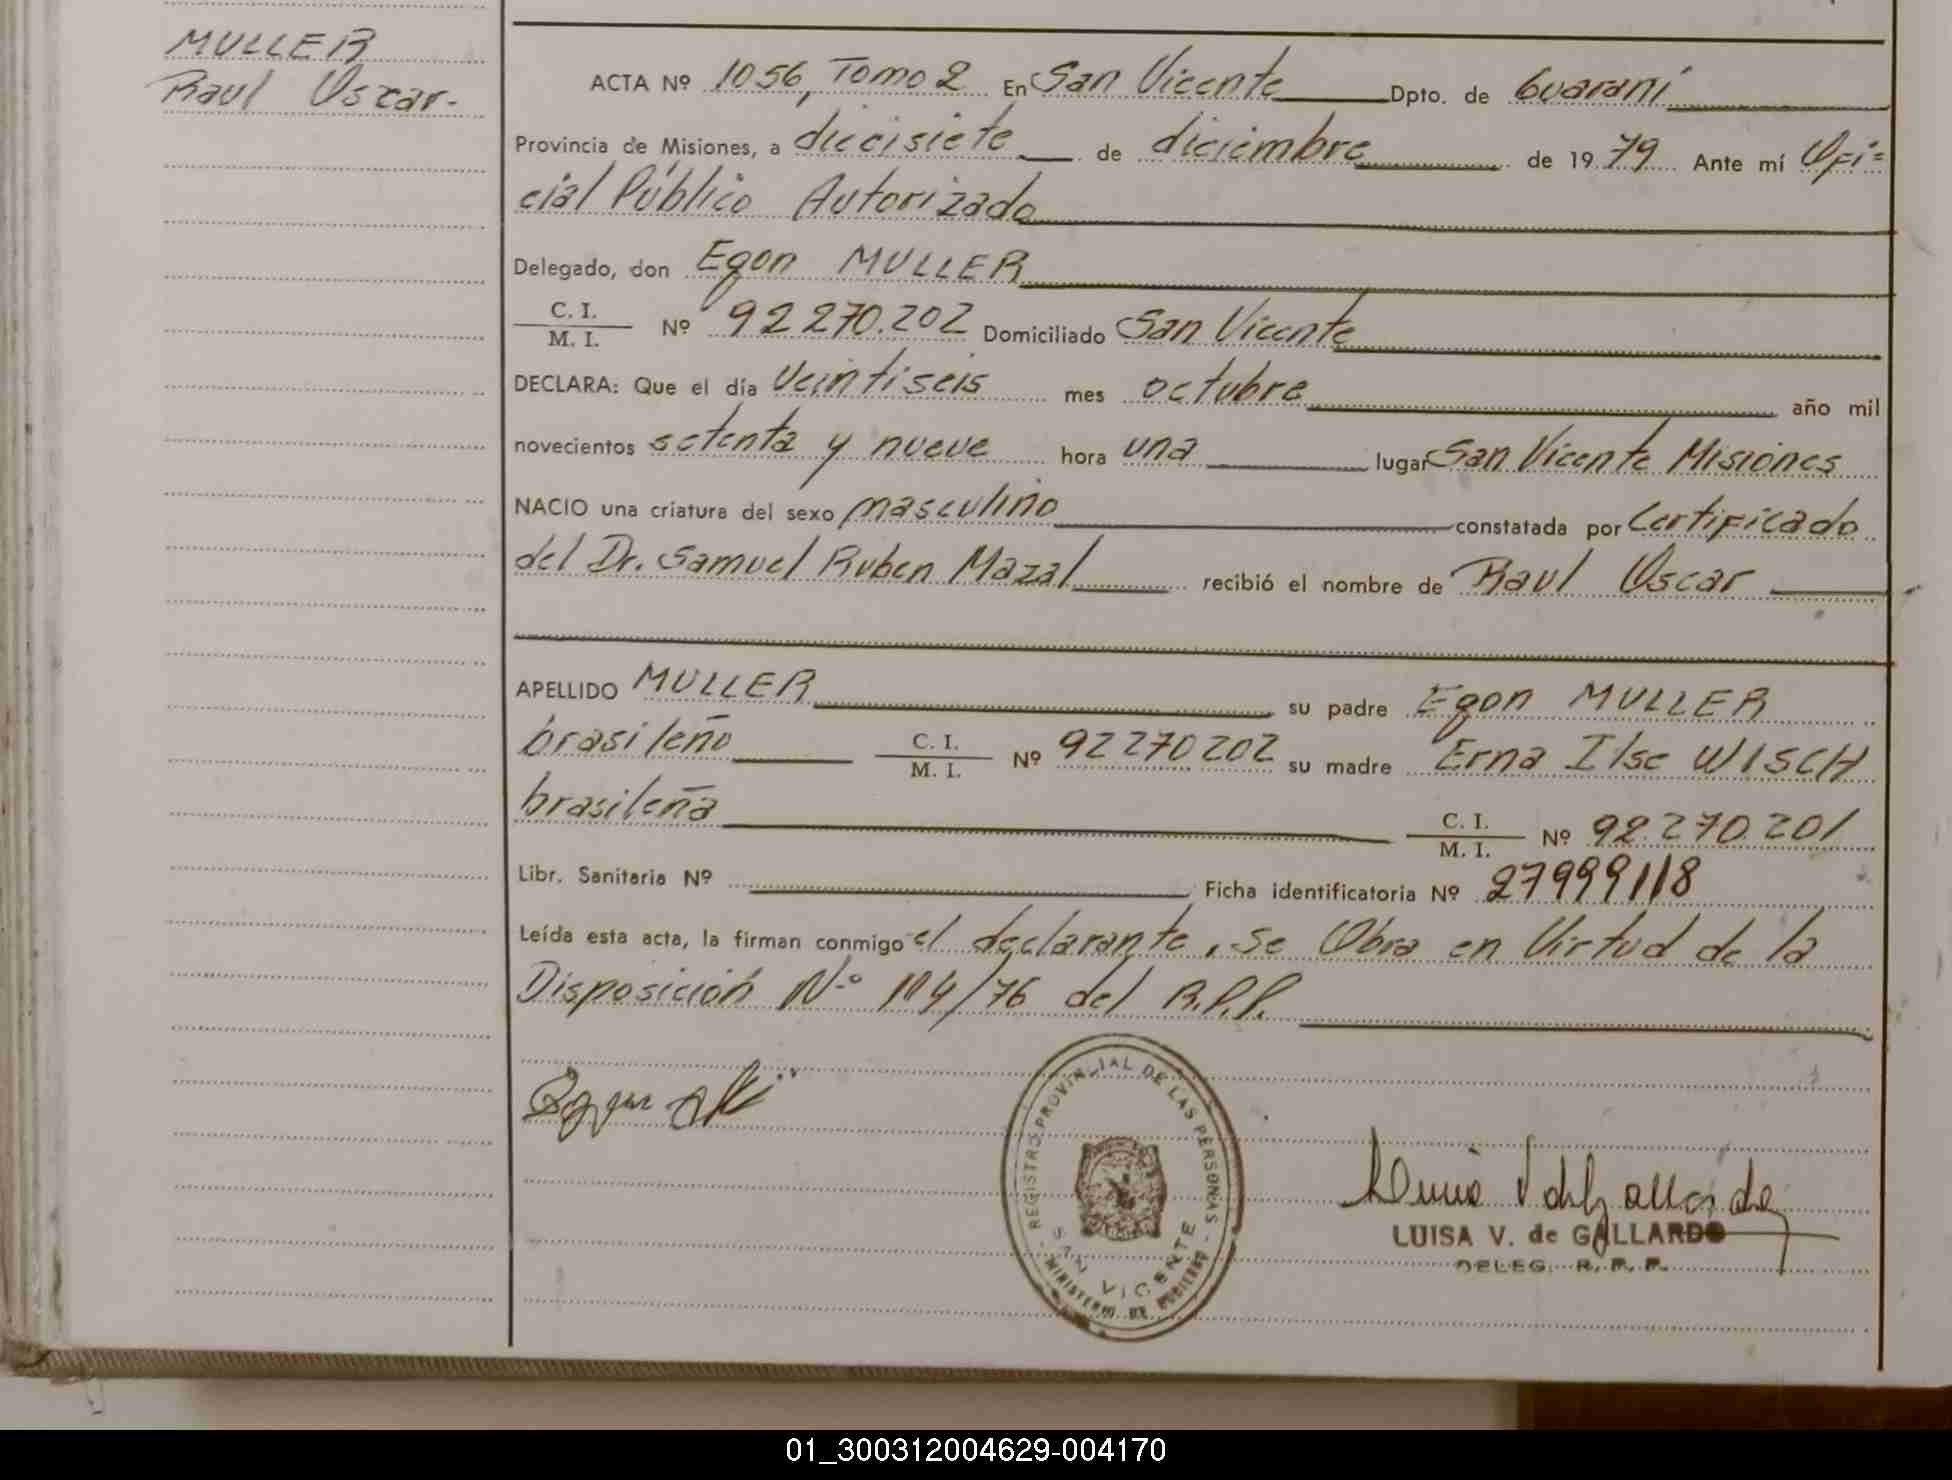 MULLER
Raul Oscar.
ACTA Nº 1056, Tomo 2 En San Vicente Dpto. de Guaraní
Provincia de Misiones, a diecisiete de diciembre de 1979 Ante mí Ofi=
cial Público Autorizado
Delegado, don Egon MULLER
C. I.
M. I. Nº 92 270.202 Domiciliado San Vicente
DECLARA: Que el día Veintiseis mes octubre año mil
novecientos setenta y nueve hora una lugar San Vicente Misiones
NACIO una criatura del sexo masculino constatada por Certificado
del Dr. Samuel Ruben Mazal recibió el nombre de Raul Oscar
APELLIDO MULLER su padre Egon MULLER
brasileño C. I. M. I. Nº 92270202 su madre Erna Ilse WISCH
brasileña C. I. M. I. Nº 92.270.201
Libr. Sanitaria Nº Ficha identificatoria Nº 27999118
Leída esta acta, la firman conmigo el declarante, se Obra en Virtud de la
Disposición Nº 114/76 del R.P.P.
REGISTRO PROVINCIAL DE LAS PERSONAS
SAN VICENTE
MINISTERIO DE GOBIERNO
LUISA V. de GALLARDO
DELEG. R. P. P.
01_300312004629-004170